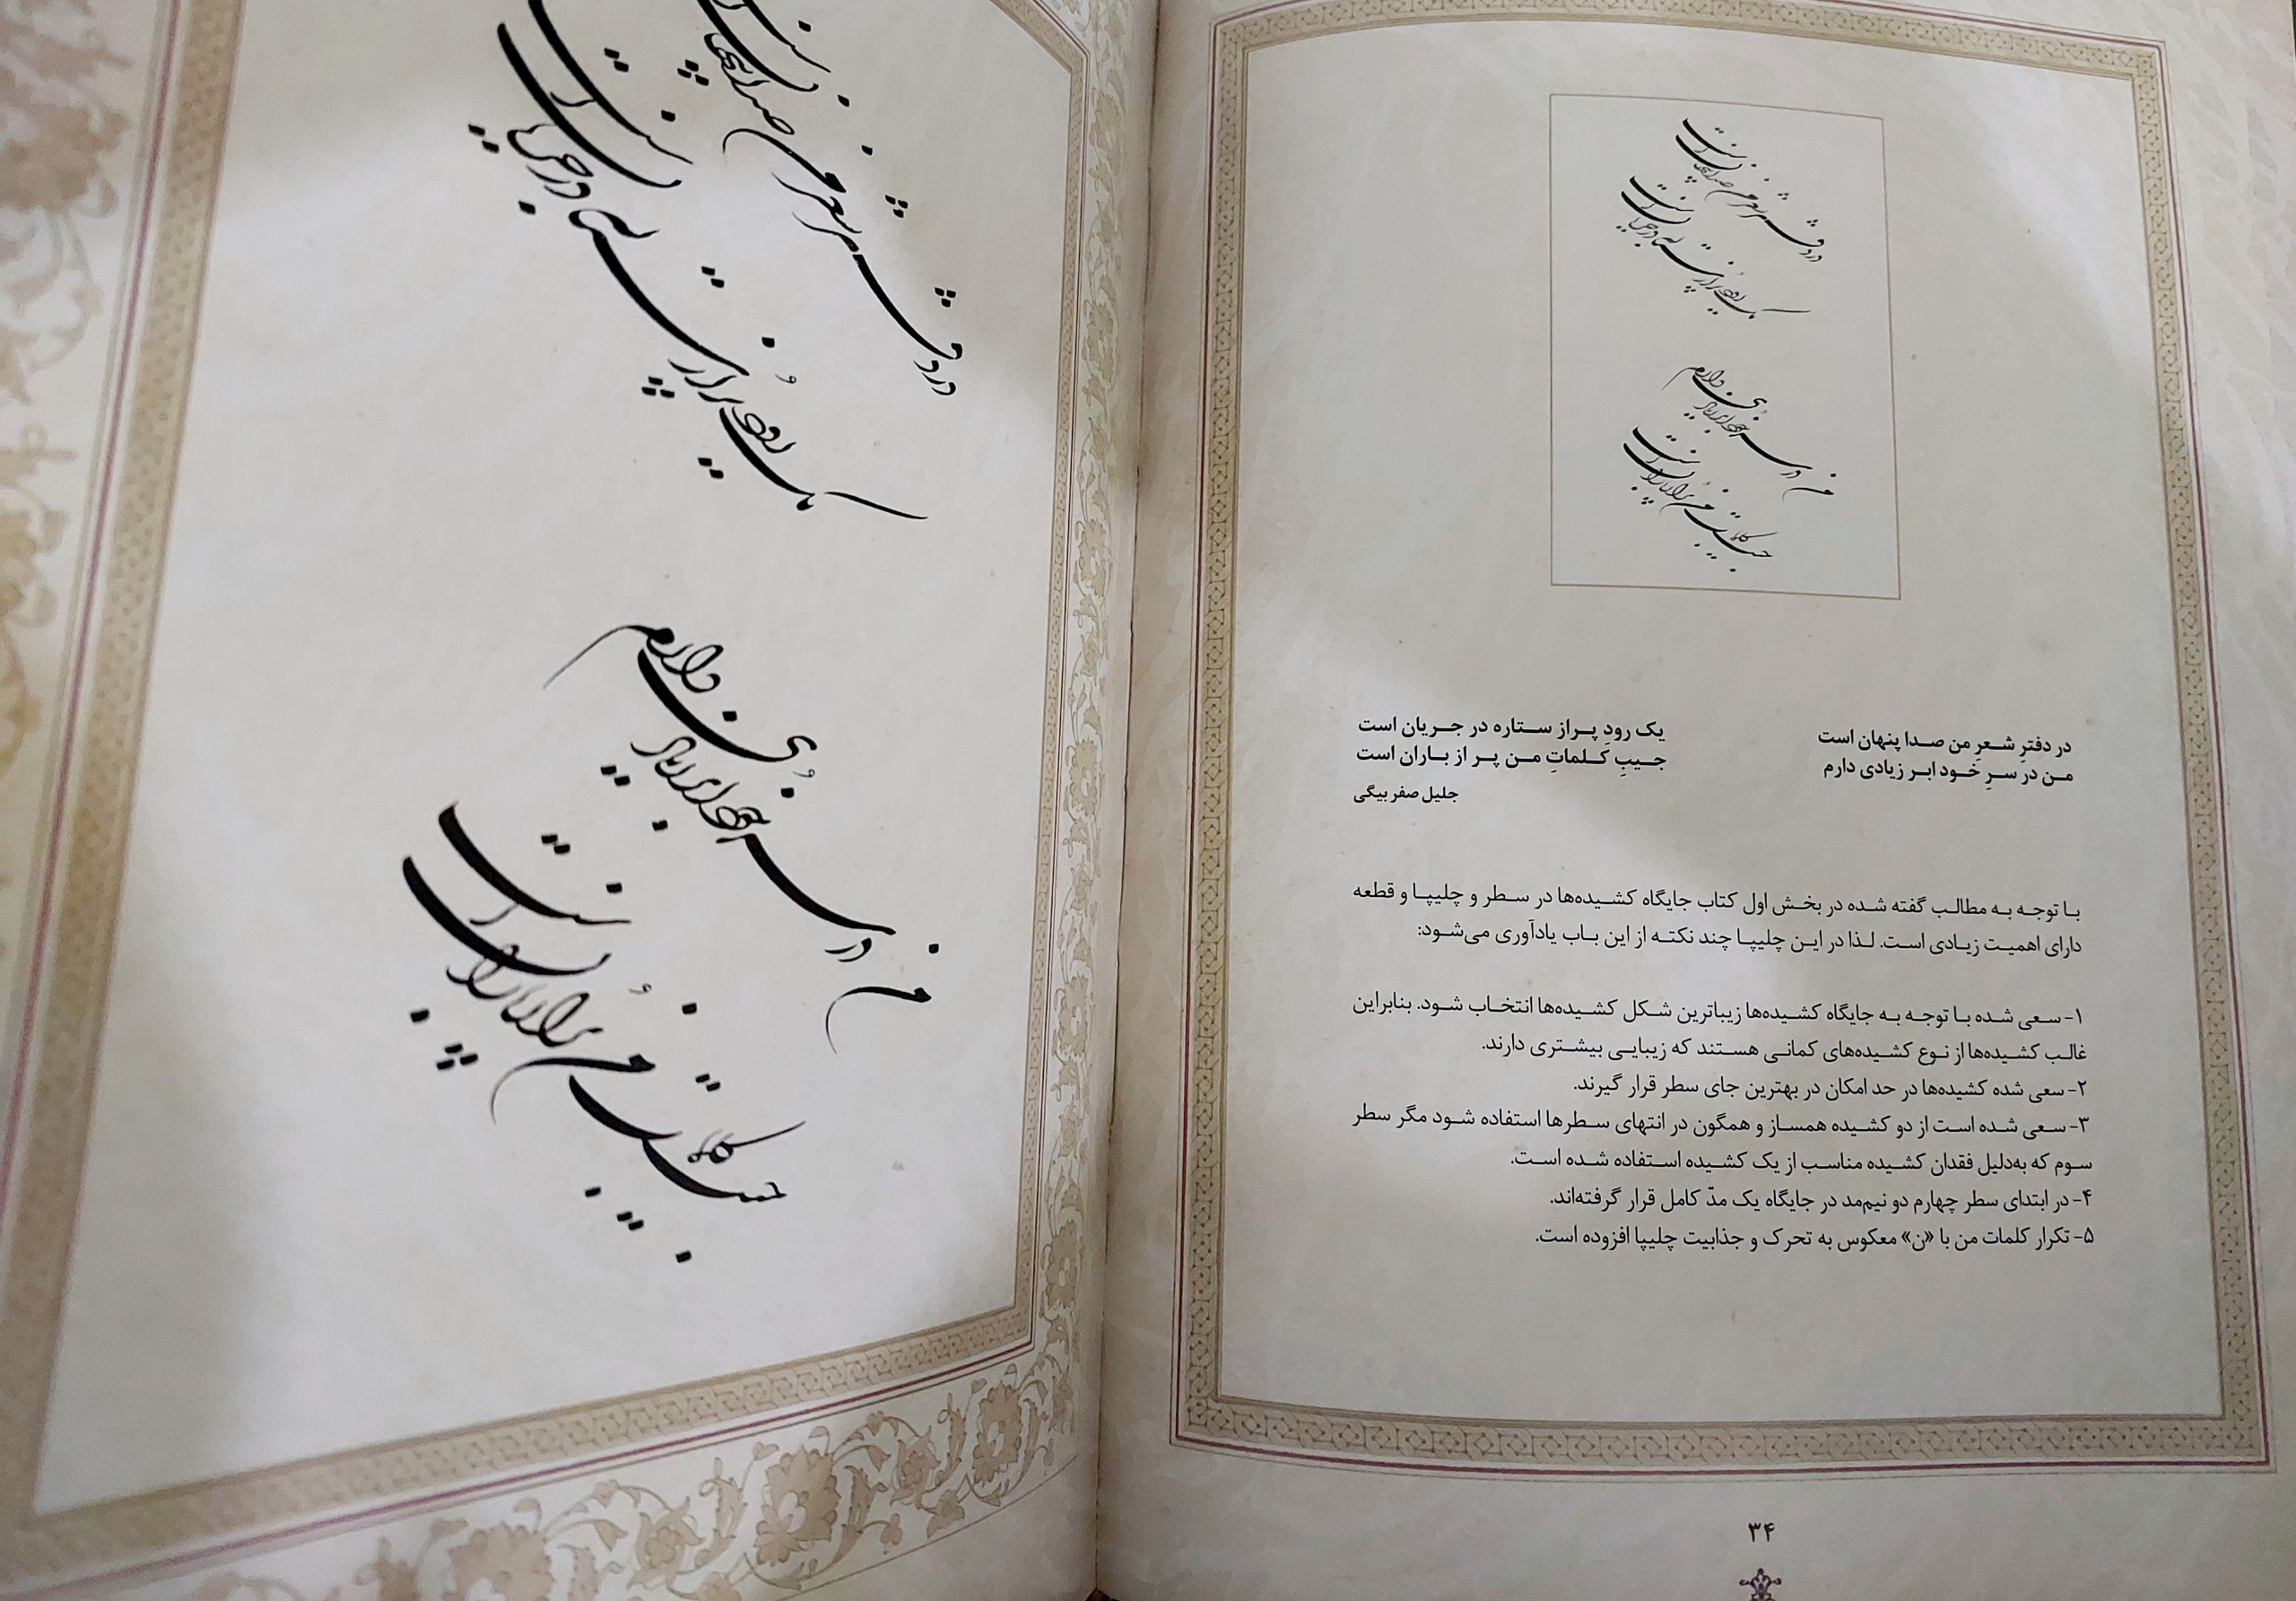 در دفترِ شعرِ من صدا پنهان است
یک رودِ پر از ستاره در جریان است
من در سرِ خود ابر زیادی دارم
جیبِ کلماتِ من پر از باران است
در دفترِ شعرِ من صدا پنهان است یک رودِ پر از ستاره در جریان است
من در سرِ خود ابر زیادی دارم جیبِ کلماتِ من پر از باران است
جلیل صفربیگی
با توجه به مطالب گفته شده در بخش اول کتاب جایگاه کشیده‌ها در سطر و چلیپا و قطعه
دارای اهمیت زیادی است. لذا در این چلیپا چند نکته از این باب یادآوری می‌شود:
۱- سعی شده با توجه به جایگاه کشیده‌ها زیباترین شکل کشیده‌ها انتخاب شود. بنابراین
غالب کشیده‌ها از نوع کشیده‌های کمانی هستند که زیبایی بیشتری دارند.
۲- سعی شده کشیده‌ها در حد امکان در بهترین جای سطر قرار گیرند.
۳- سعی شده است از دو کشیده همساز و همگون در انتهای سطرها استفاده شود مگر سطر
سوم که به‌دلیل فقدان کشیده مناسب از یک کشیده استفاده شده است.
۴- در ابتدای سطر چهارم دو نیم‌مد در جایگاه یک مدّ کامل قرار گرفته‌اند.
۵- تکرار کلمات من با «ن» معکوس به تحرک و جذابیت چلیپا افزوده است.
۳۴
در دفتر شعر من صدا پنهان است
یک رودُ پر از ستاره در جریان است
من در سر خودُ ابر زیادی دارم
جیب کلمات من پُر از باران است